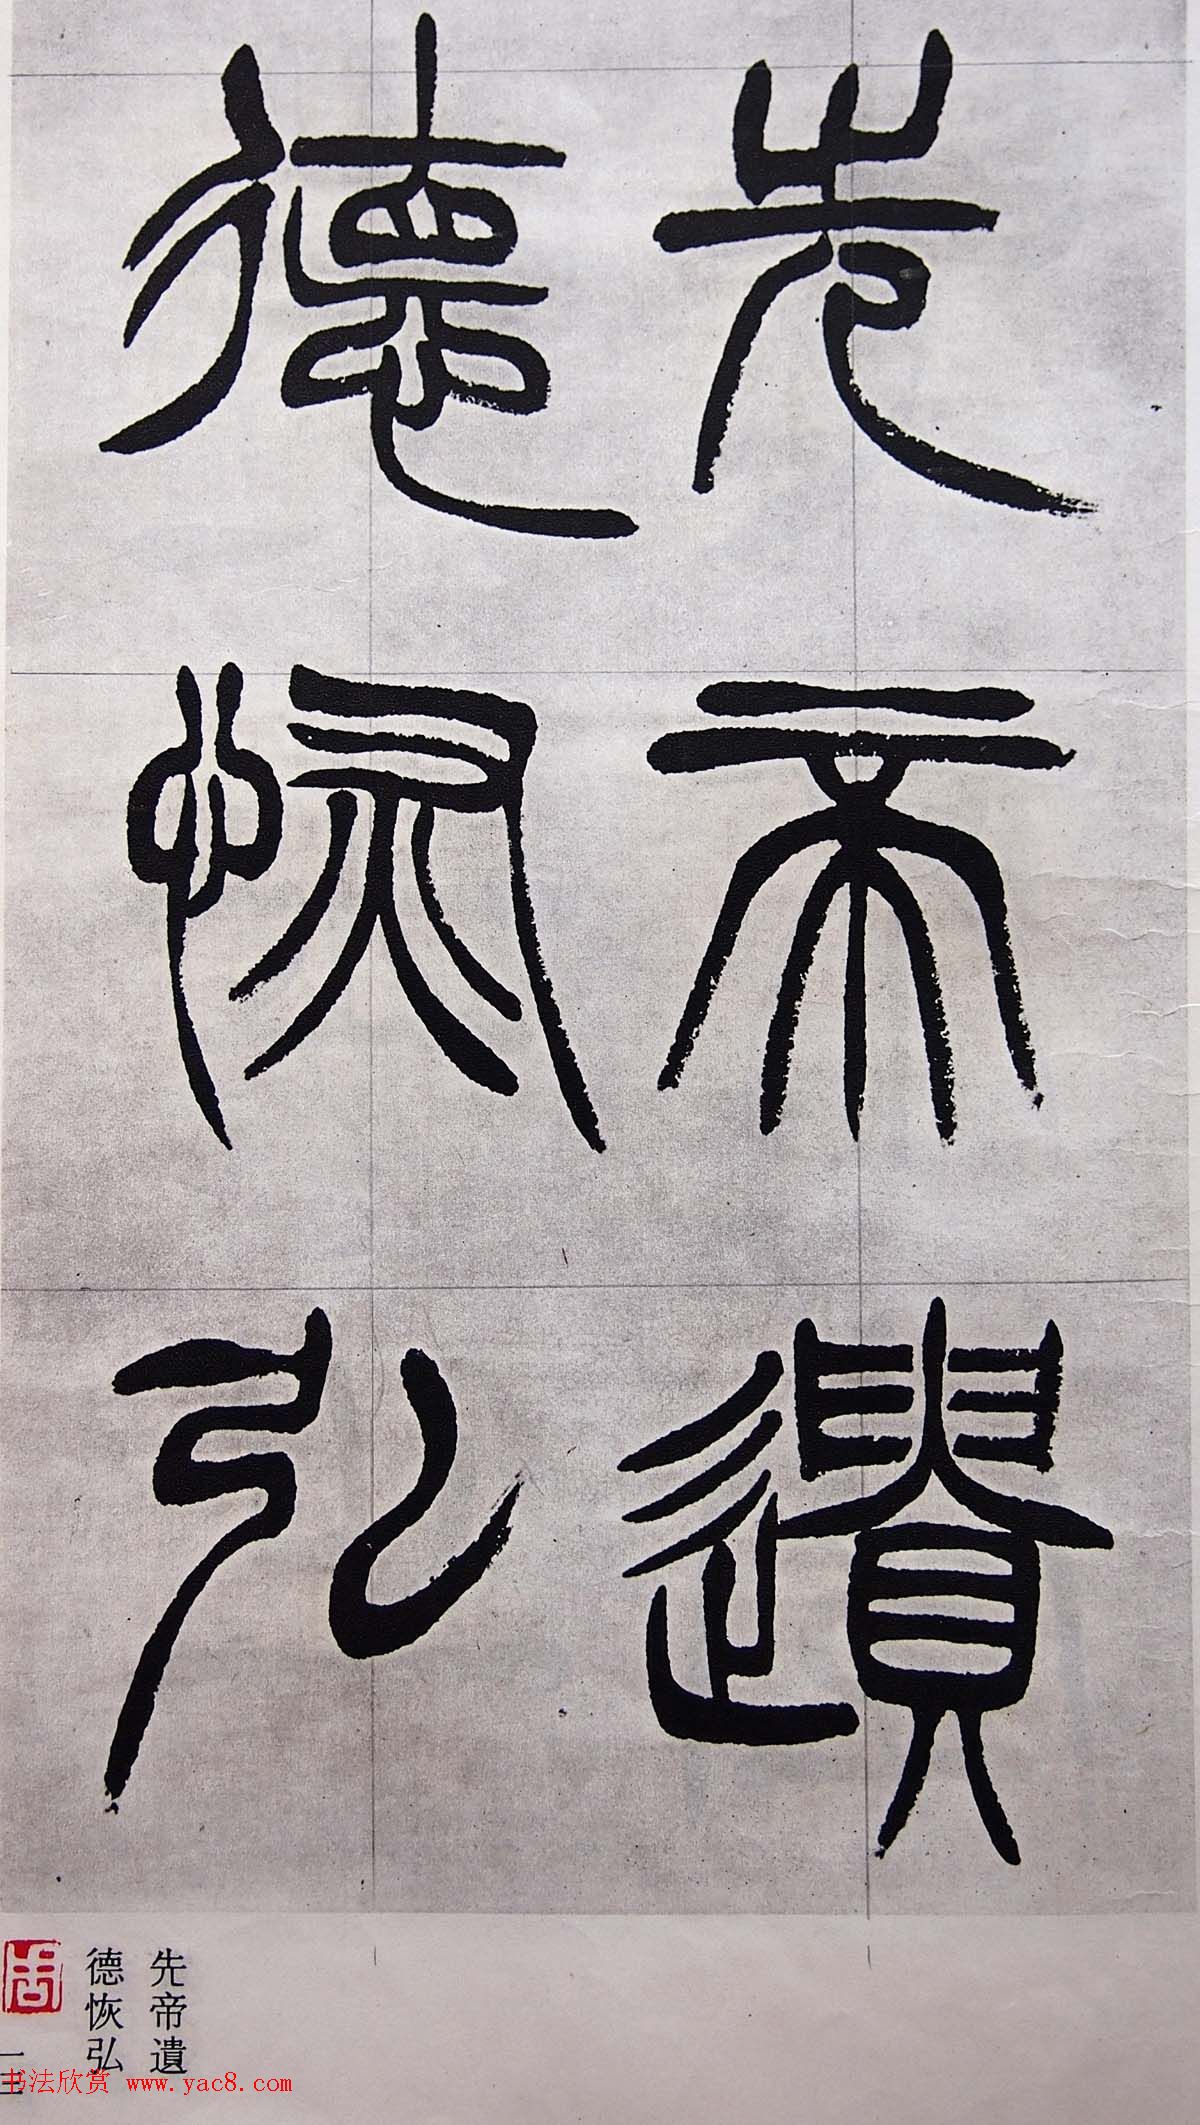 先帝遺
德恢弘
先帝遺
德恢弘
一三
书法欣赏 www.yac8.com